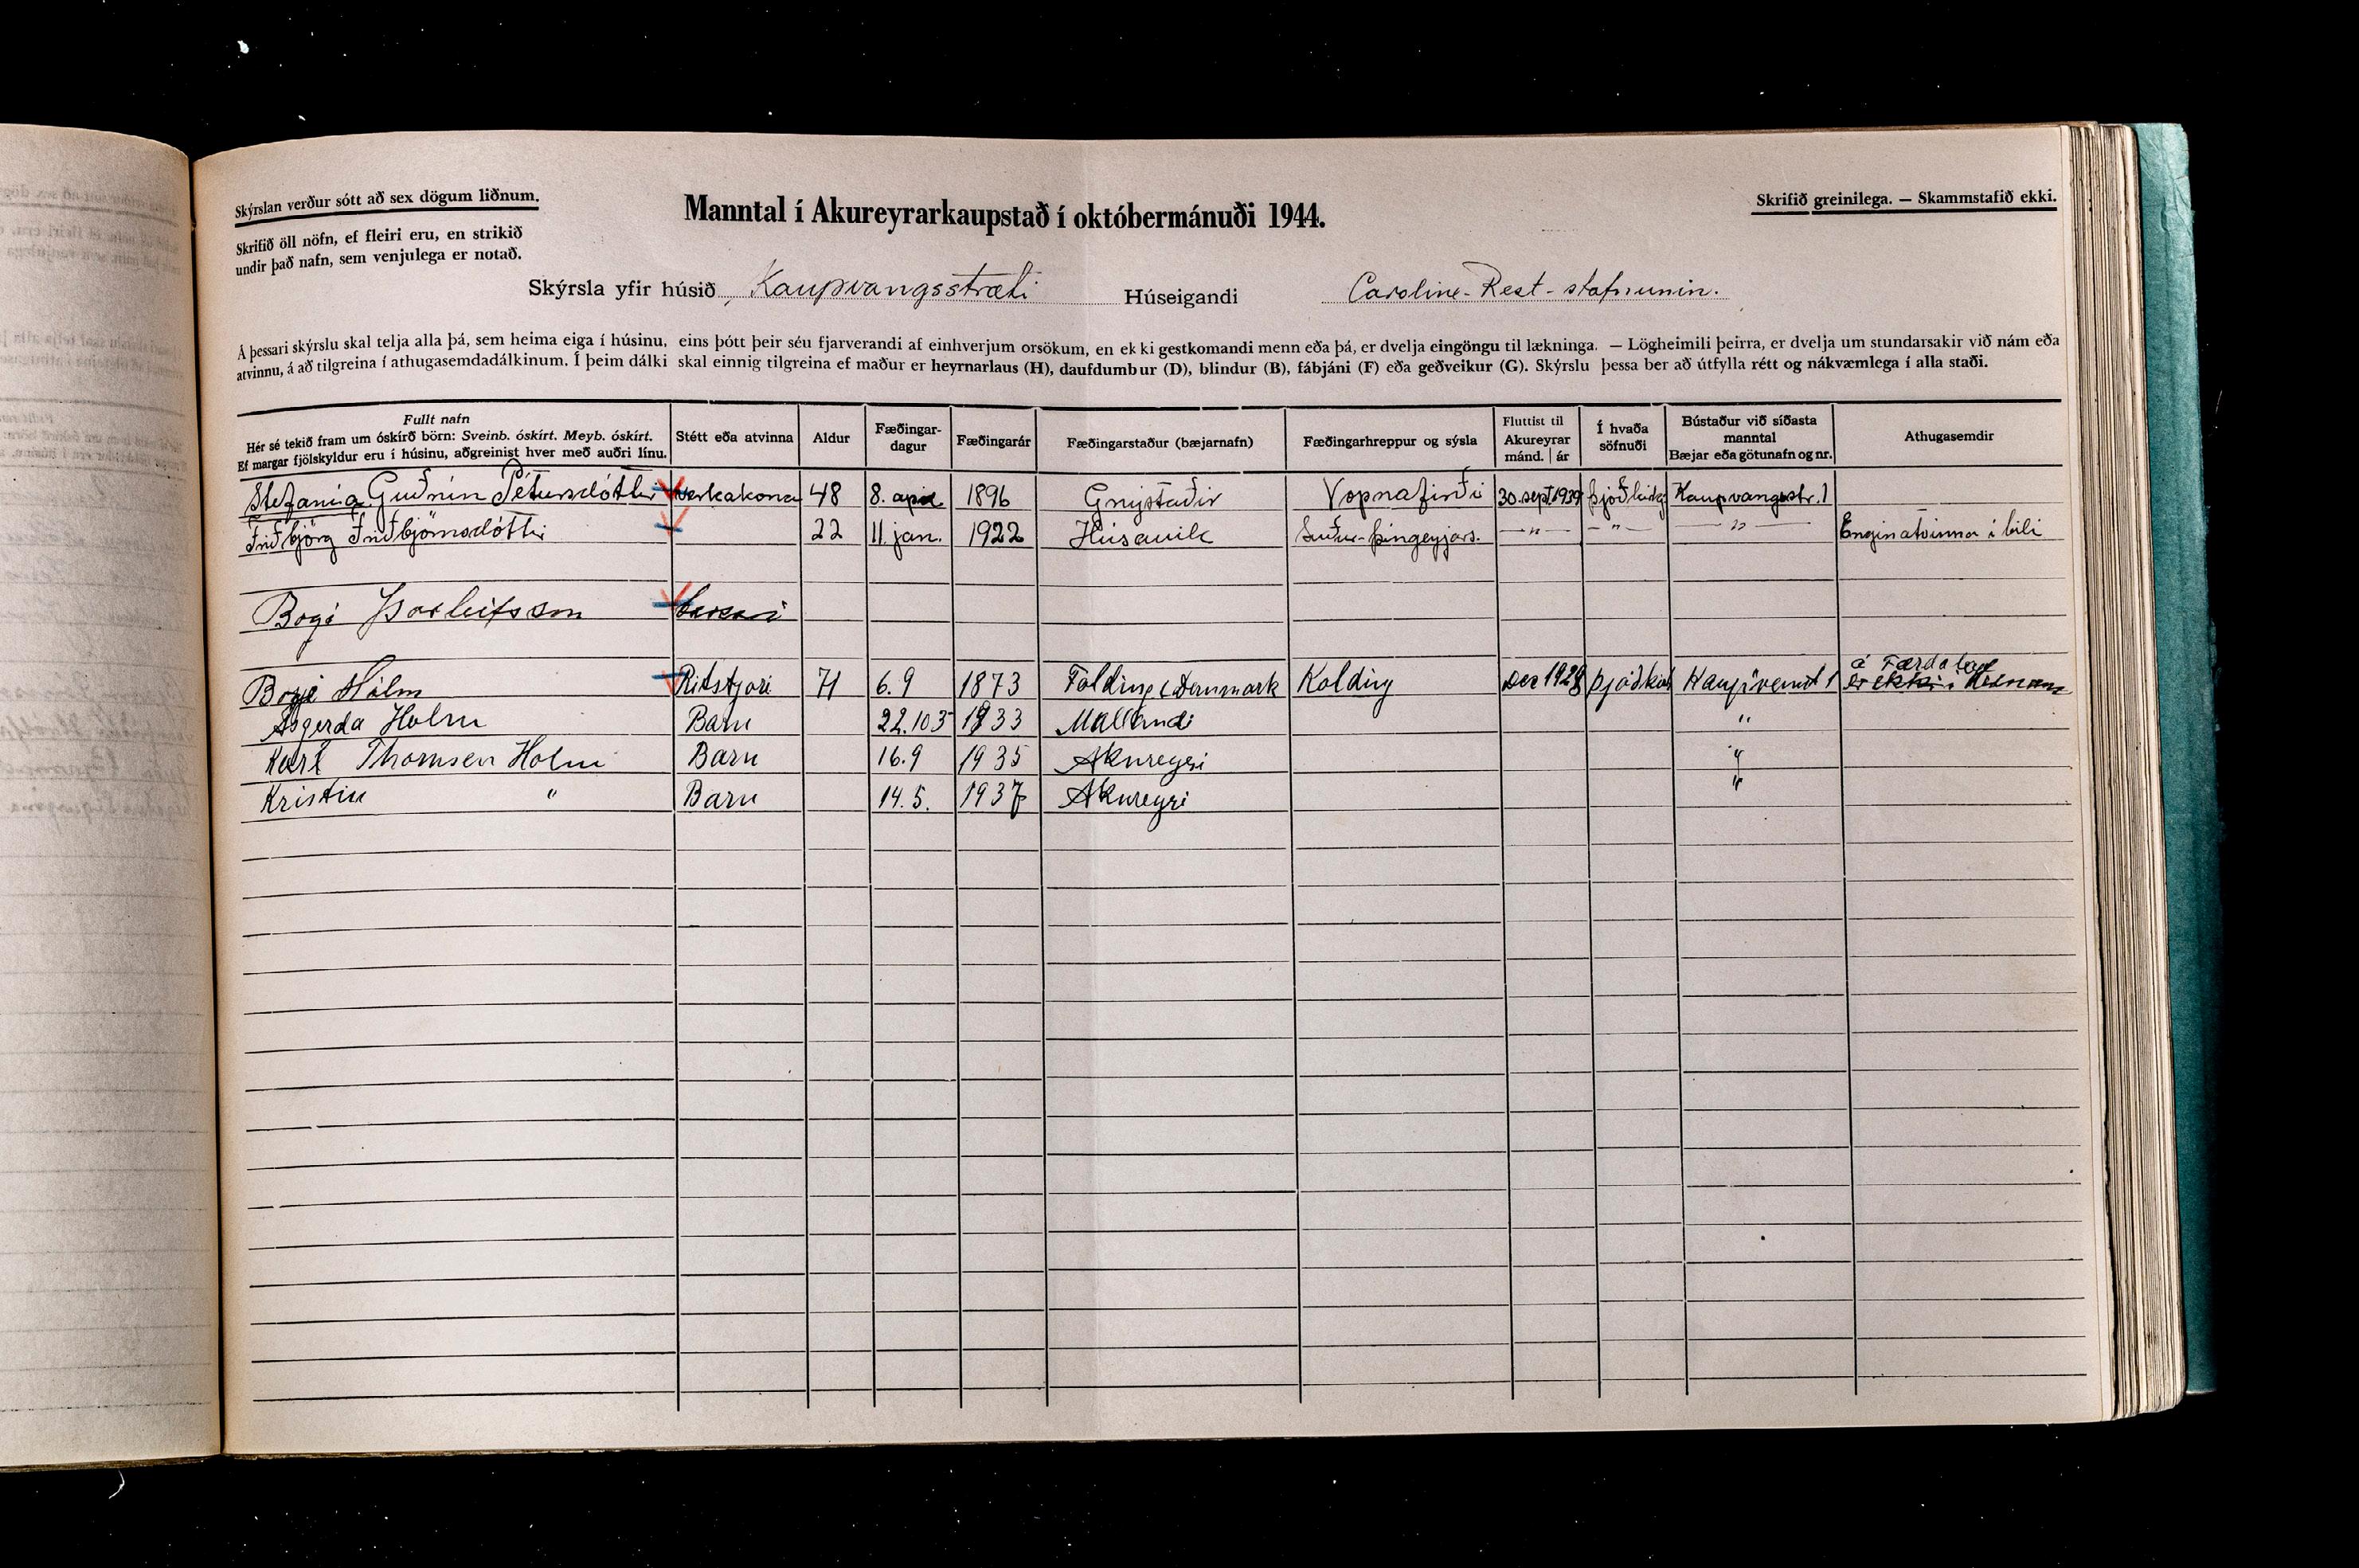 Skýrslan verður sótt að sex dögum liðnum.
Skrifið öll nöfn, ef fleiri eru, en strikið
undir það nafn, sem venjulega er notað.
Manntal í Akureyrarkaupstað í októbermánuði 1944.
Skrifið greinilega. — Skammstafið ekki.
Skýrsla yfir húsið Kaupvangsstræti Húseigandi Caroline-Rest-stofnunin.
Á þessari skýrslu skal telja alla þá, sem heima eiga í húsinu, eins þótt þeir séu fjarverandi af einhverjum orsökum, en ekki gestkomandi menn eða þá, er dvelja eingöngu til lækninga. — Lögheimili þeirra, er dvelja um stundarsakir við nám eða
atvinnu, á að tilgreina í athugasemdadálkinum. Í þeim dálki skal einnig tilgreina ef maður er heyrnarlaus (H), daufdumbur (D), blindur (B), fábjáni (F) eða geðveikur (G). Skýrslu þessa ber að útfylla rétt og nákvæmlega í alla staði.
Fullt nafn
Hér sé tekið fram um óskírð börn: Sveinb. óskírt. Meyb. óskírt.
Ef margar fjölskyldur eru í húsinu, aðgreinist hver með auðri línu.
Stétt eða atvinna
Aldur
Fæðingar-
dagur
Fæðingarár
Fæðingarstaður (bæjarnafn)
Fæðingarhreppur og sýsla
Fluttist til
Akureyrar
mánd. | ár
Í hvaða
söfnuði
Bústaður við síðasta
manntal
Bæjar eða götunafn og nr.
Athugasemdir
Stefania Guðrún Pétursdóttir verkakona 48 8. apríl 1896 Gnýstaðir Vopnafirði 30. sept. 1939 Kaupvangsstr. 1
Friðbjörg Friðbjörnsdóttir 22 11. jan. 1922 Húsavík Suður-Þingeyjars. —"— —"— —"— Engin atvinna í bili
Bogi Þorleifsson
Holm Ritstjori 71 6.9 1873 Danmark Kolding Des 1928 1 á
Asgerda Holm Barn 1933 "
Karl Thomsen Holm Barn 16.9 1935 Akureyri "
Kristin " Barn 14.5. 1937 Akureyri "